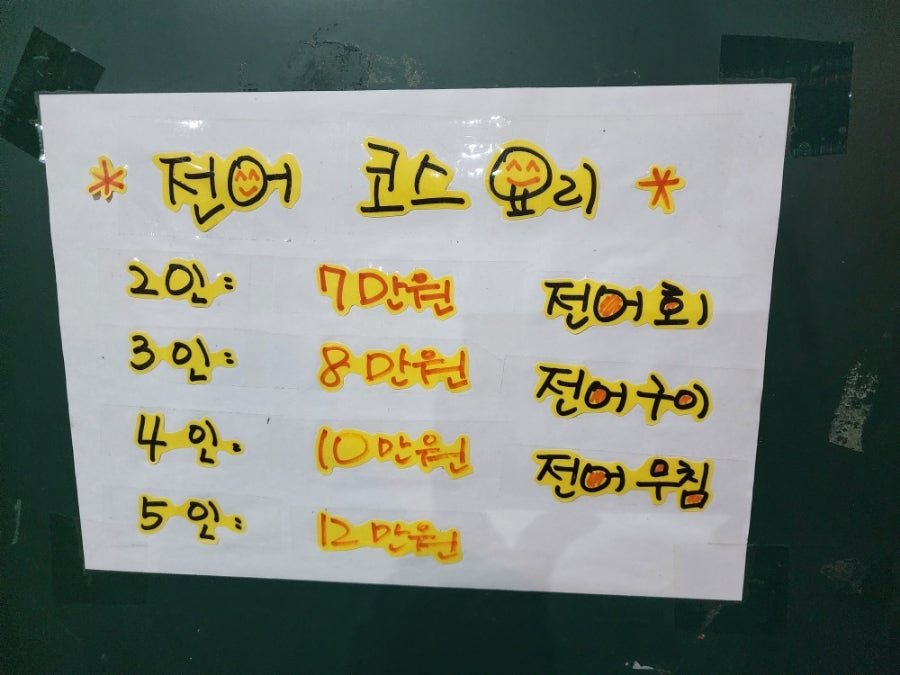 * 전어 코스 요리 *
2인: 7만원
전어회
3인: 8만원
전어구이
4인: 10만원
전어무침
5인: 12만원